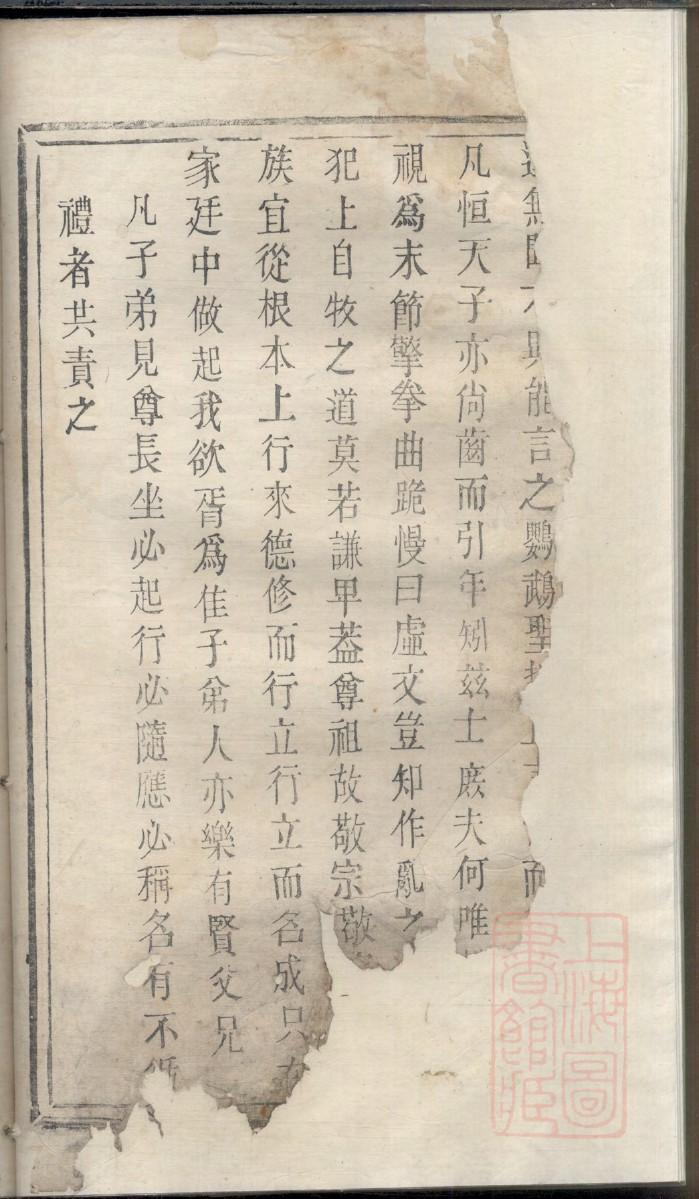 無 與能言之鸚鵡聖 而
凡恒天子亦尚齒而引年矧玆士庶夫何唯
視爲末節擎拳曲跪慢曰虛文豈知作亂之
犯上自牧之道莫若謙卑葢尊祖故敬宗敬
族宜從根本上行來德修而行立行立而名成只在
家廷中做起我欲胥爲佳子弟人亦樂有賢父兄
凡子弟見尊長坐必起行必隨應必稱名有不循
禮者共責之
上海圖
書館